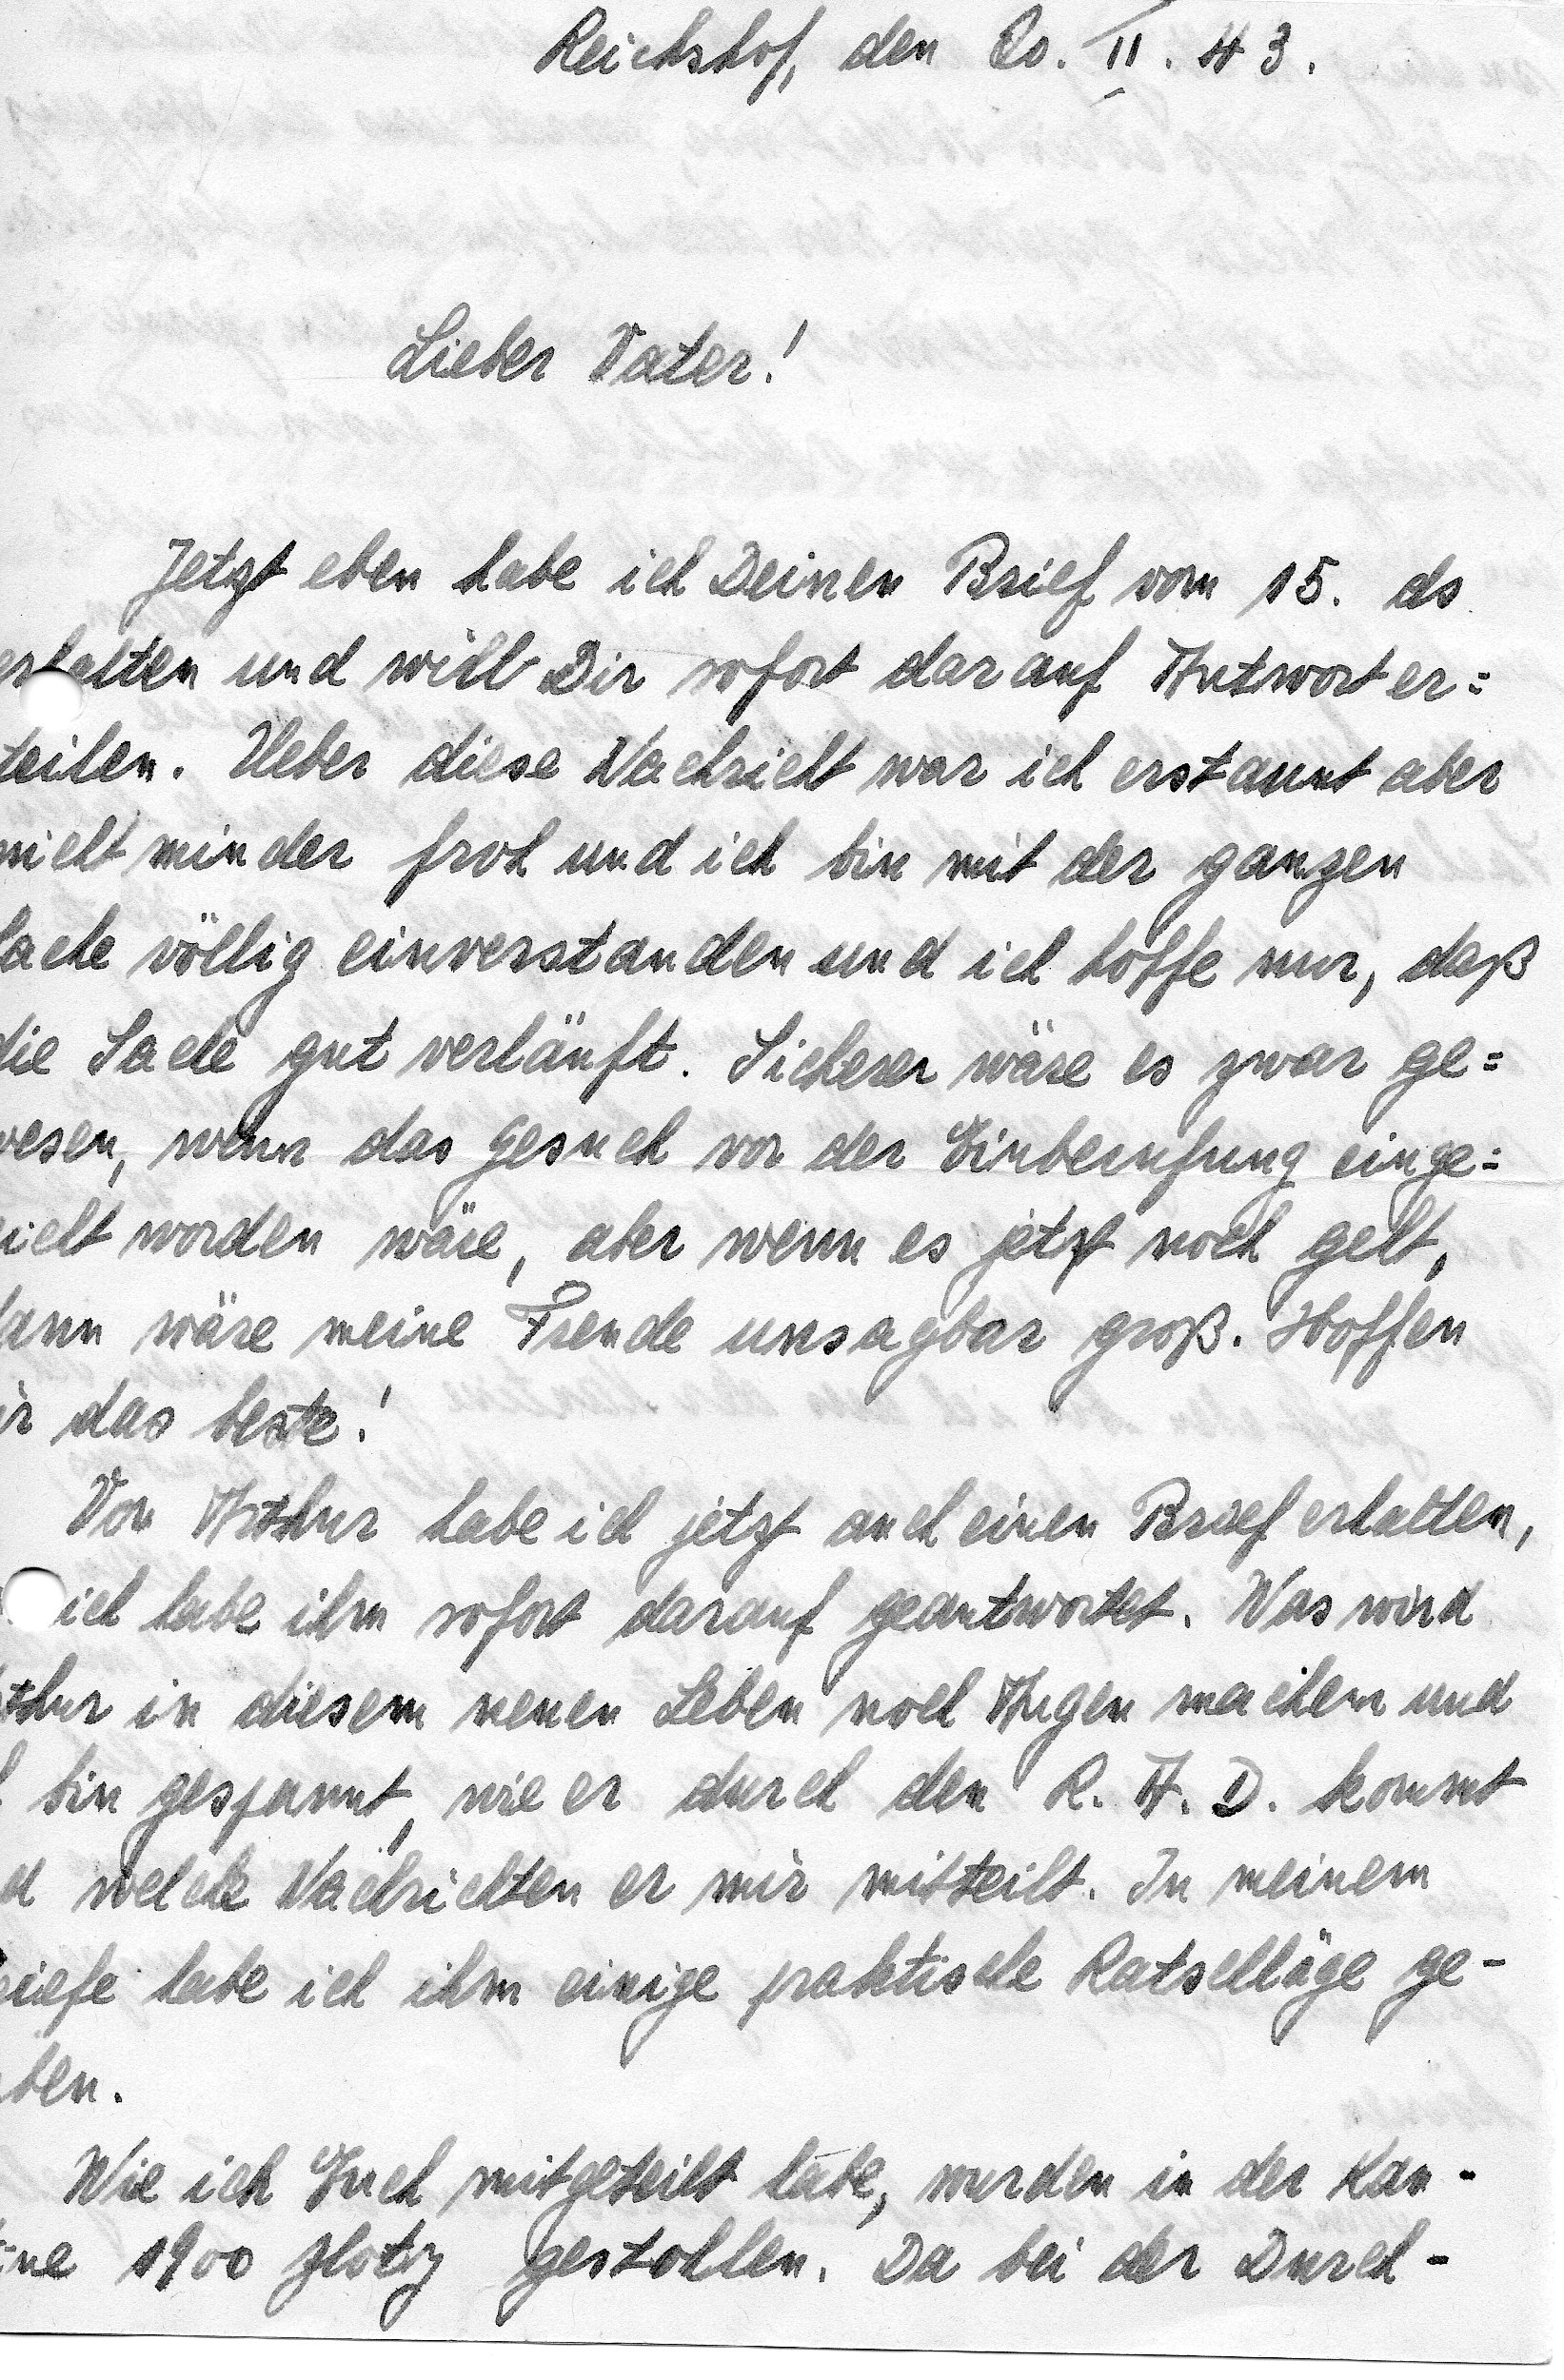 Reichshof, den 20. II. 43.
Lieber Vater!
Jetzt eben habe ich Deinen Brief vom 15. ds
erhalten und will Dir sofort darauf Antwort er=
teilen. Ueber diese Nachricht war ich erstaunt aber
nicht minder froh und ich bin mit der ganzen
Sache völlig einverstanden und ich hoffe nur, daß
die Sache gut verläuft. Sicherer wäre es zwar ge=
wesen, wenn das Gesuch vor der Einberufung einge=
reicht worden wäre, aber wenn es jetzt noch geht,
dann wäre meine Freude unsagbar groß. Hoffen
wir das beste!
Von Arthur habe ich jetzt auch einen Brief erhalten,
ich habe ihm sofort darauf geantwortet. Was wird
Arthur in diesem neuen Leben noch Augen machen und
ich bin gespannt, wie er durch den R. A. D. kommt
und welche Nachrichten er mir mitteilt. In meinem
Briefe habe ich ihm einige praktische Ratschläge ge-
geben.
Wie ich Euch mitgeteilt habe, wurden in der Kan-
tine 1900 Zloty gestohlen. Da bei der Durch-